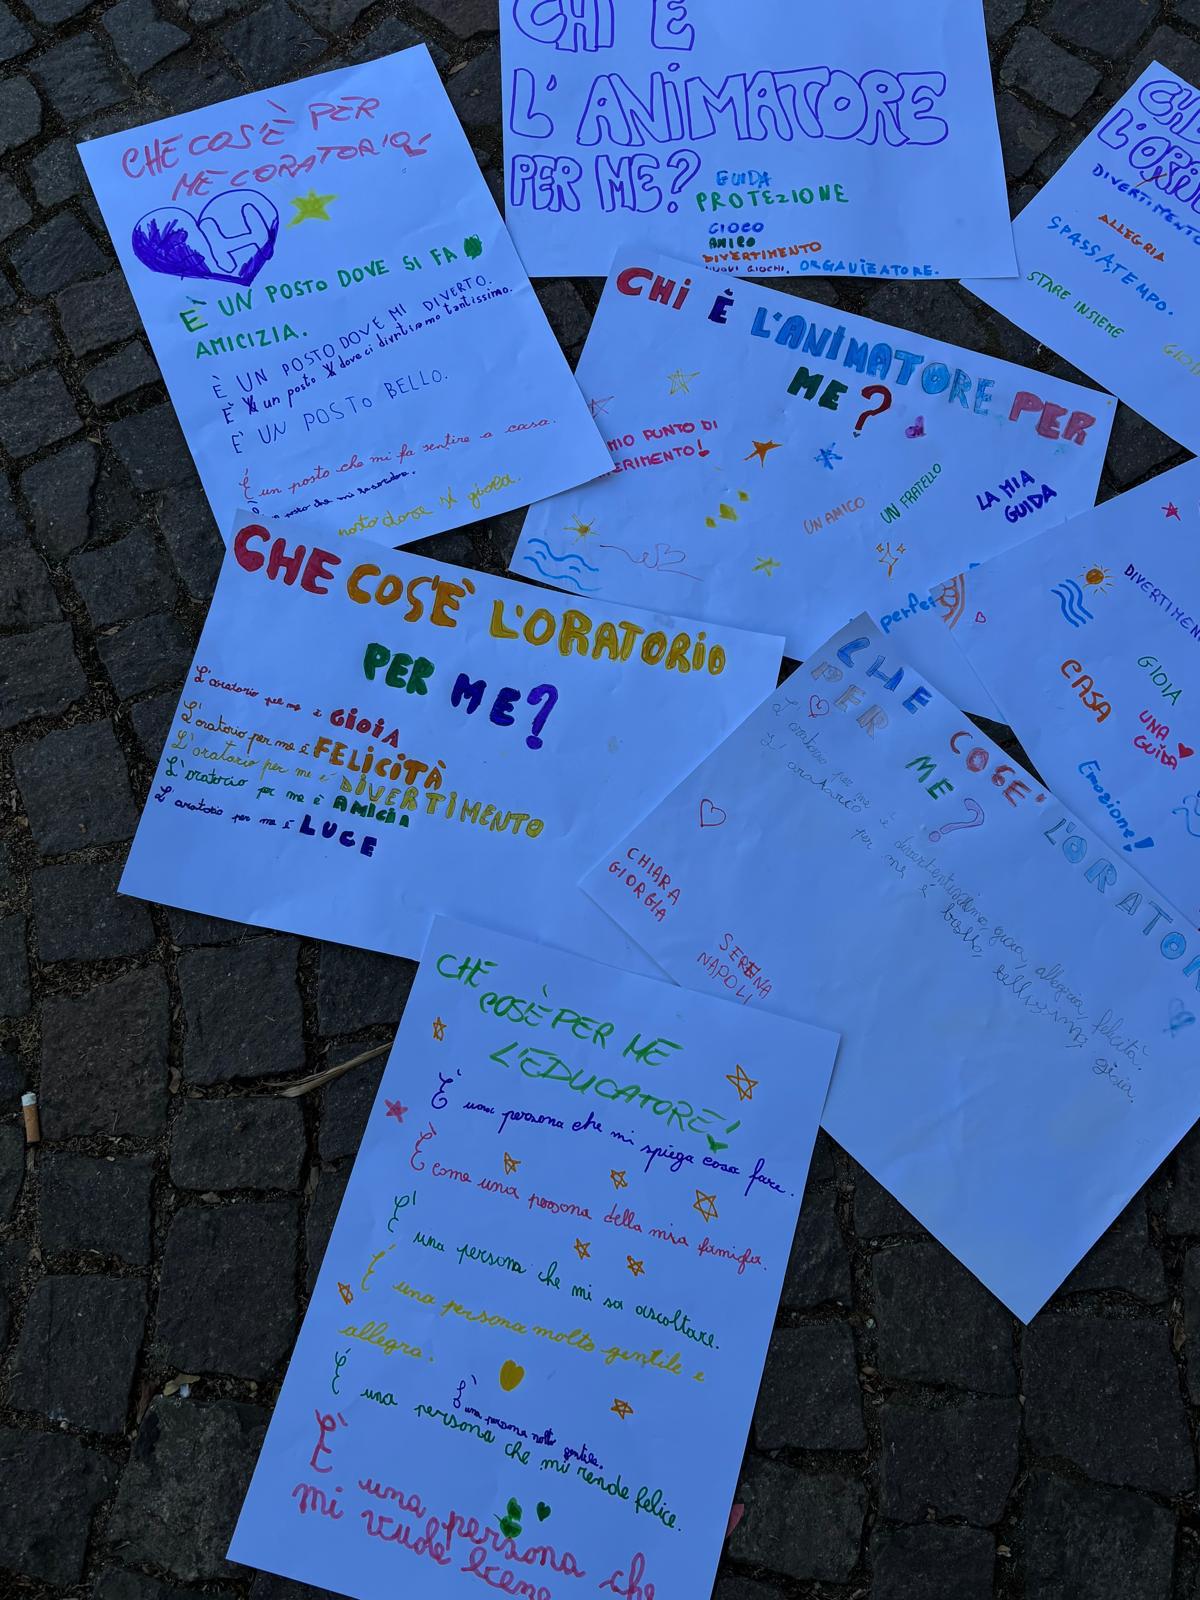 CHE COS'È PER
ME L'ORATORIO?
H
È UN POSTO DOVE SI FA
AMICIZIA.
È UN POSTO DOVE MI DIVERTO.
È un posto dove ci divertiamo tantissimo.
E' UN POSTO BELLO.
È un posto che mi fa sentire a casa.
posto che mi
posto dove gioia.
CHI È
L'ANIMATORE
PER ME?
GUIDA
PROTEZIONE
GIOCO
AMICO
DIVERTIMENTO
NUOVI GIOCHI. ORGANIZATORE.
CHE
L'OR
DIVERTIMENTO
ALLEGRIA
SPASSATEMPO.
STARE INSIEME
GIOI
CHI È L'ANIMATORE PER
ME?
MIO PUNTO DI
ERIMENTO!
UN AMICO
UN FRATELLO
LA MIA
GUIDA
perfet
DIVERTIMEN
GIOIA
CASA
UNA
GUIDA
Emozione!
CHE COS'È L'ORATORIO
PER ME?
L'oratorio per me è GIOIA
L'oratorio per me è FELICITÀ
L'oratorio per me è DIVERTIMENTO
L'oratorio per me è AMICIA
L'oratorio per me è LUCE
CHE COSE' L'ORATOR
PER ME?
L'oratorio per me è divertentissimo, gioia, allegria, felicità.
L'oratorio per me è bello, bellissimo, gioia.
CHIARA
GIORGIA
SERENA
NAPOLI
CHE
COS'È PER ME
L'EDUCATORE!
È una persona che mi spiega cosa fare.
È come una persona della mia famiglia.
E' una persona che mi sa ascoltare.
E' una persona molto gentile e
allegra.
È una persona molto gentile.
È una persona che mi rende felice.
E' una persona che
mi vuole bene